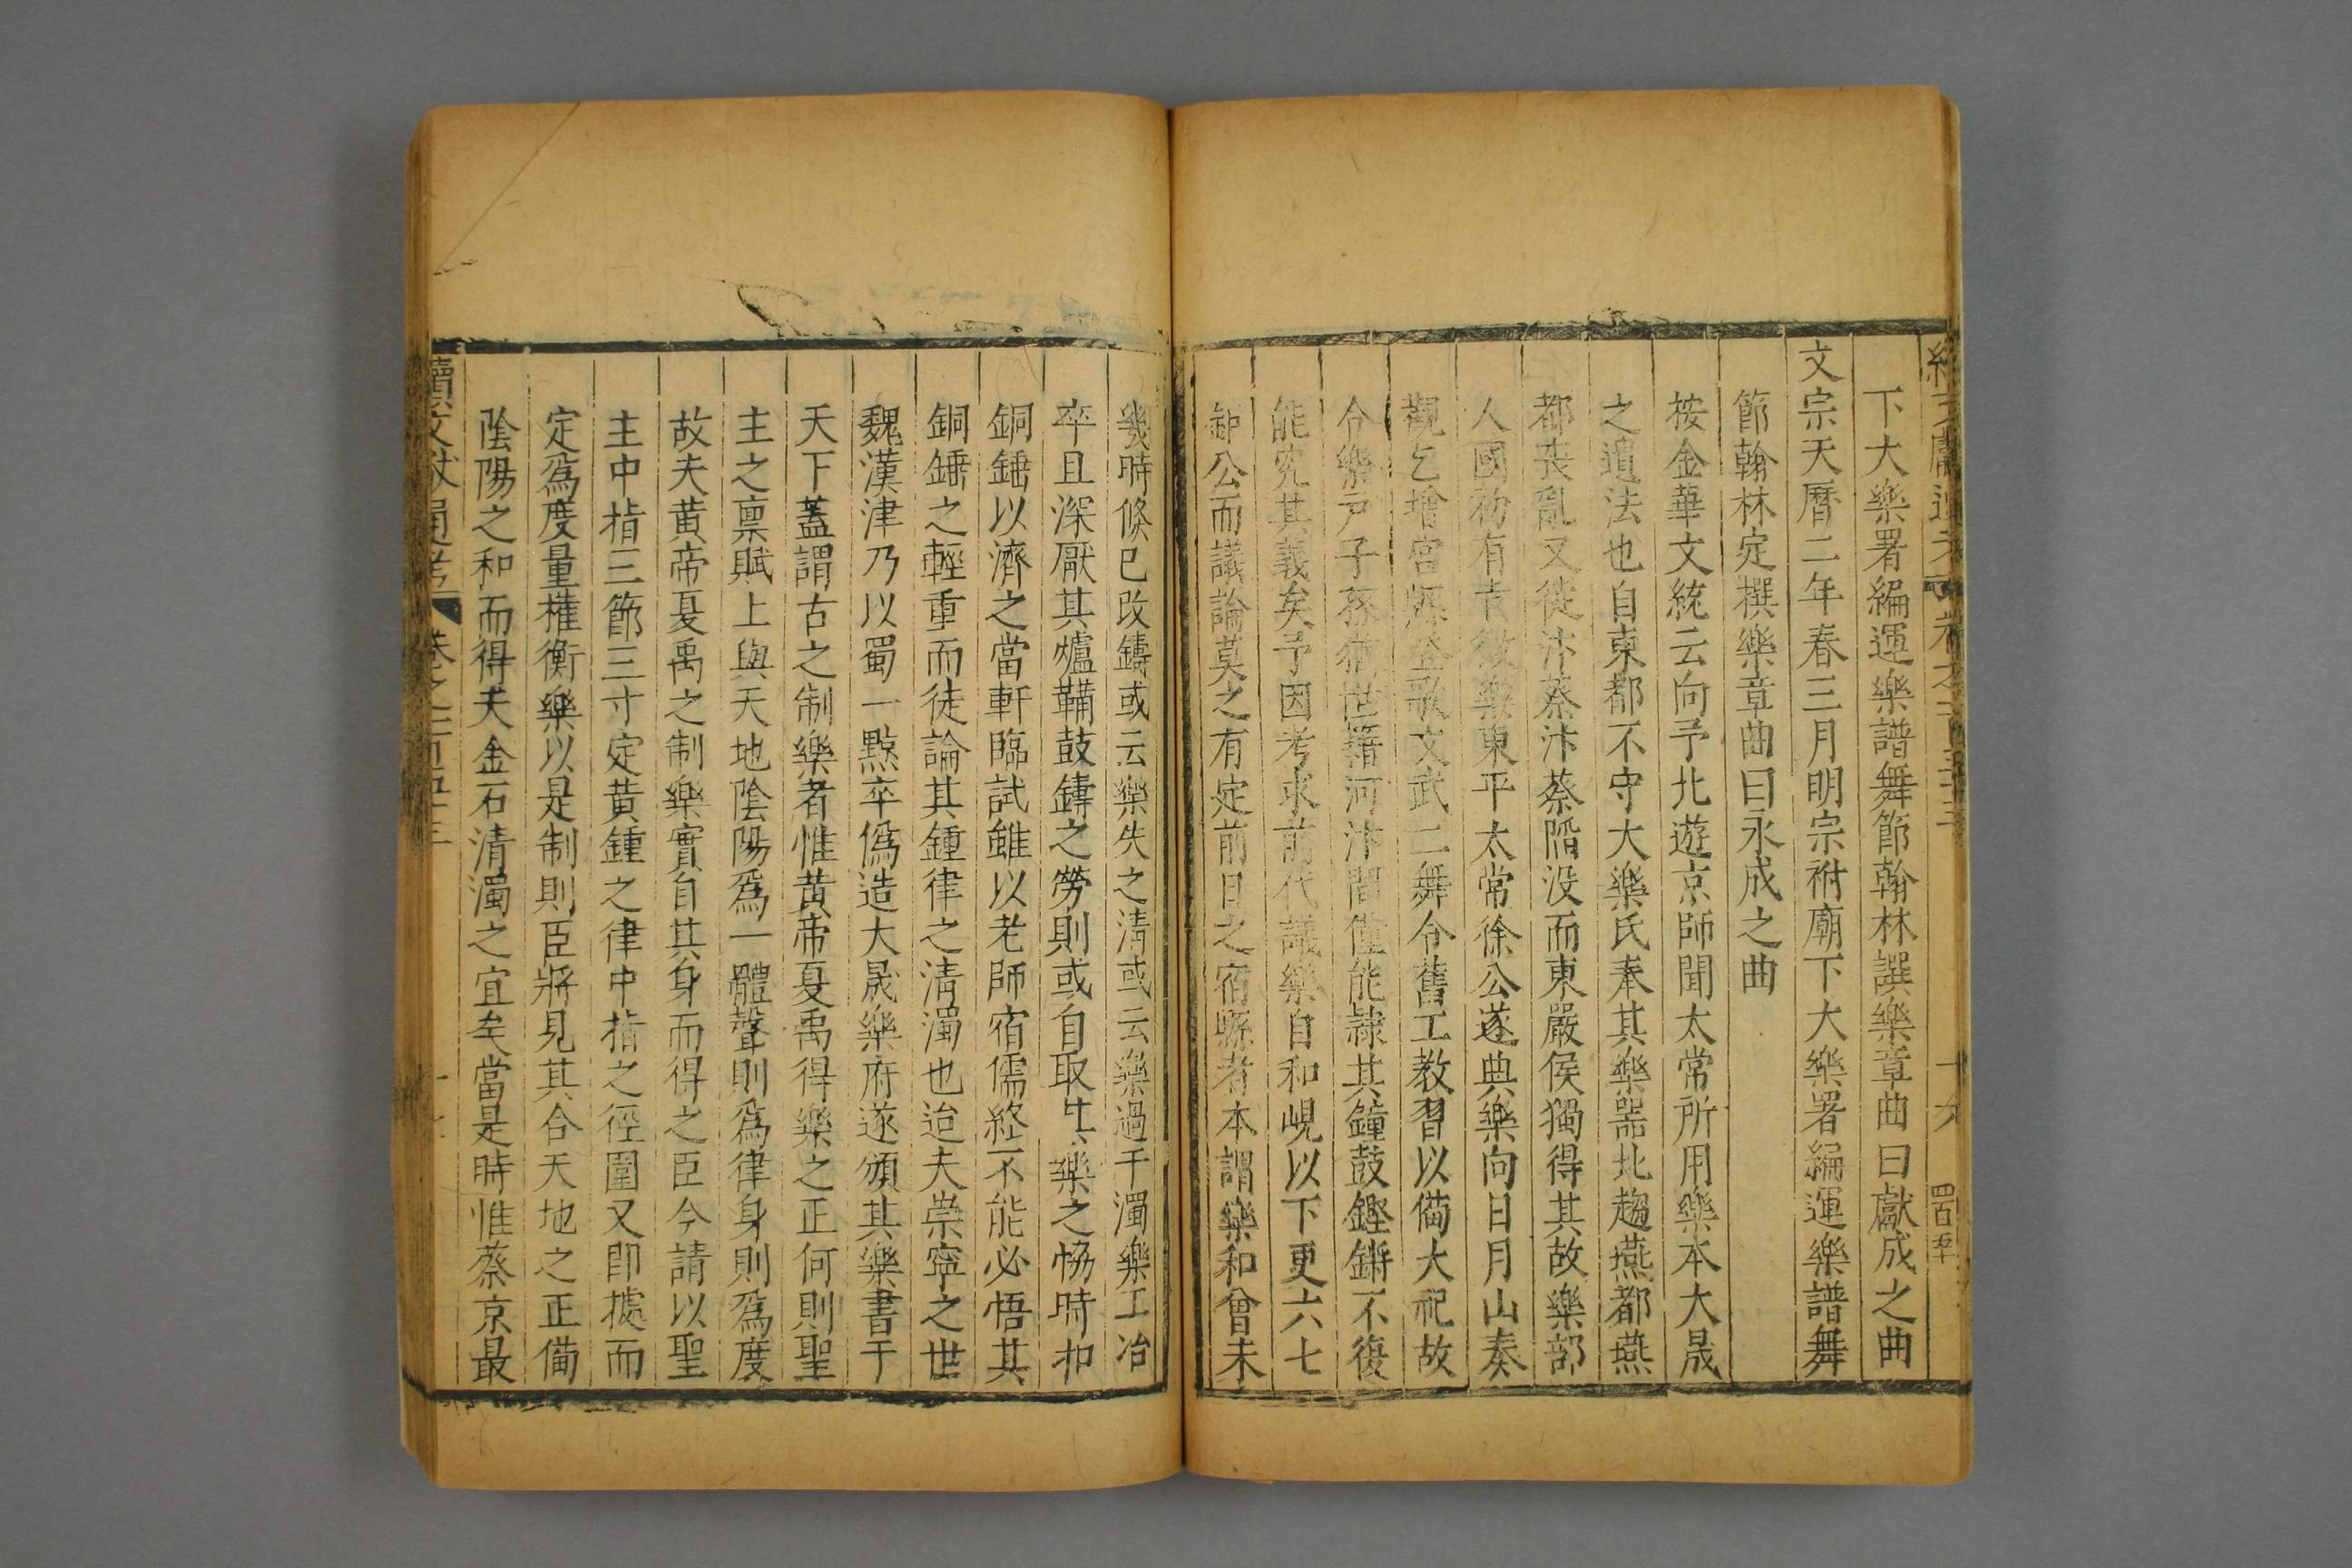 下大樂署編運樂譜舞節翰林譔樂章曲曰獻成之曲
文宗天曆二年春三月明宗祔廟下大樂署編運樂譜舞
節翰林定撰樂章曲曰永成之曲
按金華文統云向予北遊京師聞太常所用樂本大晟
之遺法也自東都不守大樂氏奉其樂器北趨燕都燕
都喪亂又徙汴蔡汴蔡陷没而東嚴侯獨得其故樂部
人國初有言徵樂東平太常徐公遂典樂向日月山奏
觀乞增宮縣登歌文武二舞令舊工教習以備大祀故
今樂戸子孫猶世籍河汴間僅能肄其鐘鼓鏗鏘不復
能究其義矣予因考求前代議樂自和峴以下更六七
鉅公而議論莫之有定前日之宿縣者本謂樂和曾未
幾時倐已改鑄或云樂失之清或云樂過于濁樂工冶
卒且深厭其爐鞴鼓鑄之勞則或自取 樂之恊時扣
銅鍾以濟之當軒臨試雖以老師宿儒終不能必悟其
銅鍾之輕重而徒論其鍾律之清濁也迨夫崇寧之世
魏漢津乃以蜀一黥卒僞造大晟樂府遂頒其樂書于
天下蓋謂古之制樂者惟黄帝夏禹得樂之正何則聖
主之稟賦上與天地陰陽爲一體聲則爲律身則爲度
故夫黄帝夏禹之制樂實自其身而得之臣今請以聖
主中指三節三寸定黄鍾之律中指之徑圍又即據而
定爲度量權衡樂以是制則臣將見其合天地之正備
陰陽之和而得夫金石清濁之宜矣當是時惟蔡京最
續文獻通考